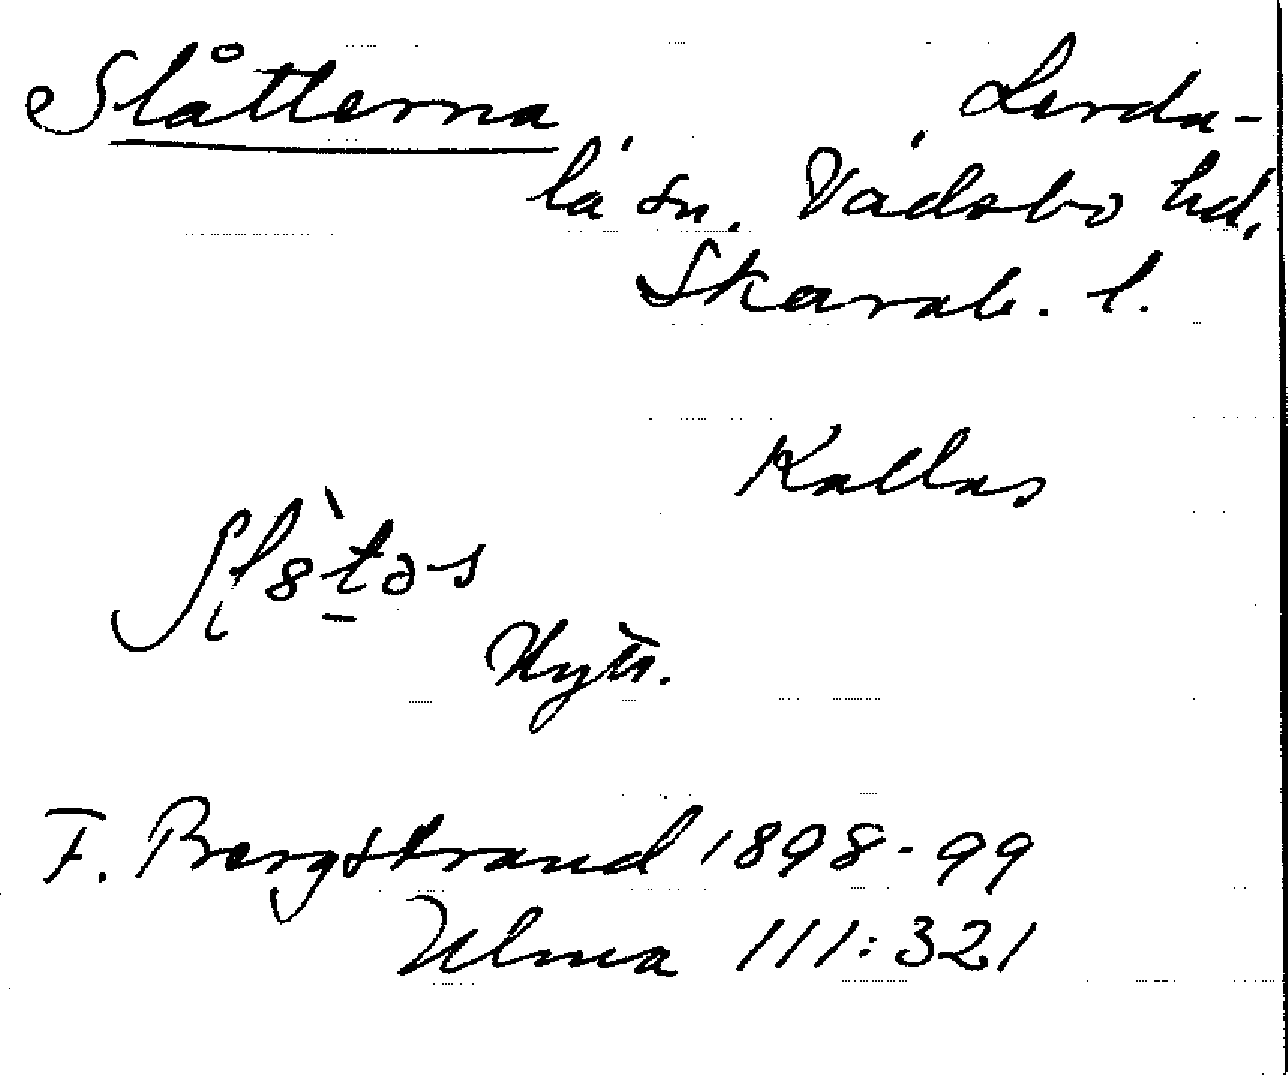 Slåtterna Lerda-
la sn. Vadsbo hd.
Skarab. l.
Kallas
Nyttr.
F. Bergstrand 1898-99
Ulma 111:321